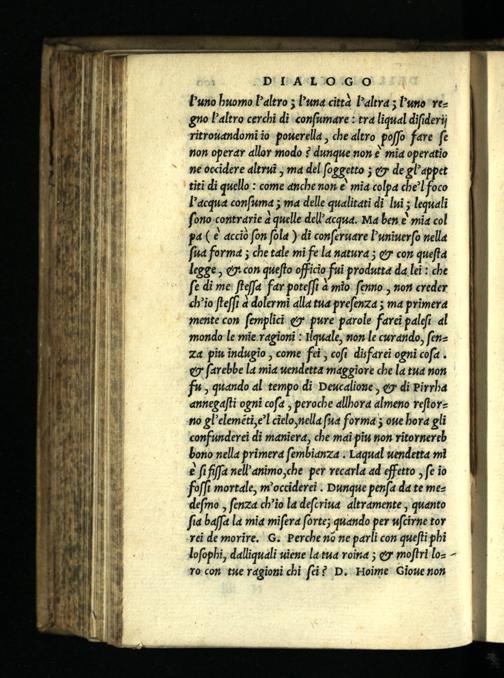 DIALOGO
l'uno huomo l'altro; l'una città l'altra; l'uno re=
gno l'altro cerchi di consumare: tra liqual disiderij
ritrouandomi io pouerella, che altro posso fare se
non operar allor modo? dunque non è mia operatio
ne occidere altrui, ma del soggetto; & de gl'appet
titi di quello: come anche non è mia colpa che'l foco
l'acqua consuma; ma delle qualitati di lui; lequali
sono contrarie à quelle dell'acqua. Ma ben è mia col
pa (è acciò son sola) di conseruare l'uniuerso nella
sua forma; che tale mi fe la natura; & con questa
legge, & con questo officio fui produtta da lei: che
se di me stessa far potessi à mio senno, non creder
ch'io stessi à dolermi alla tua presenza; ma primera
mente con semplici & pure parole farei palesi al
mondo le mie ragioni: Ilquale, non le curando, sen=
za piu indugio, come fei, cosi disfarei ogni cosa.
& sarebbe la mia uendetta maggiore che la tua non
fu, quando al tempo di Deucalione, & di Pirrha
annegasti ogni cosa, peroche allhora almeno restor=
no gl'elemēti, e'l cielo, nella sua forma; oue hora gli
confunderei di maniera, che mai piu non ritornereb
bono nella primera sembianza. Laqual uendetta mi
è si fissa nell'animo, che per recarla ad effetto, se io
fossi mortale, m'occiderei. Dunque pensa da te me=
desmo, senza ch'io la descriua altramente, quanto
sia bassa la mia misera sorte; quando per uscirne tor
rei de morire. G. Perche nō ne parli con questi phi
losophi, dalliquali uiene la tua roina; & mostri lo=
ro con tue ragioni chi sei? D. Hoime Gioue non